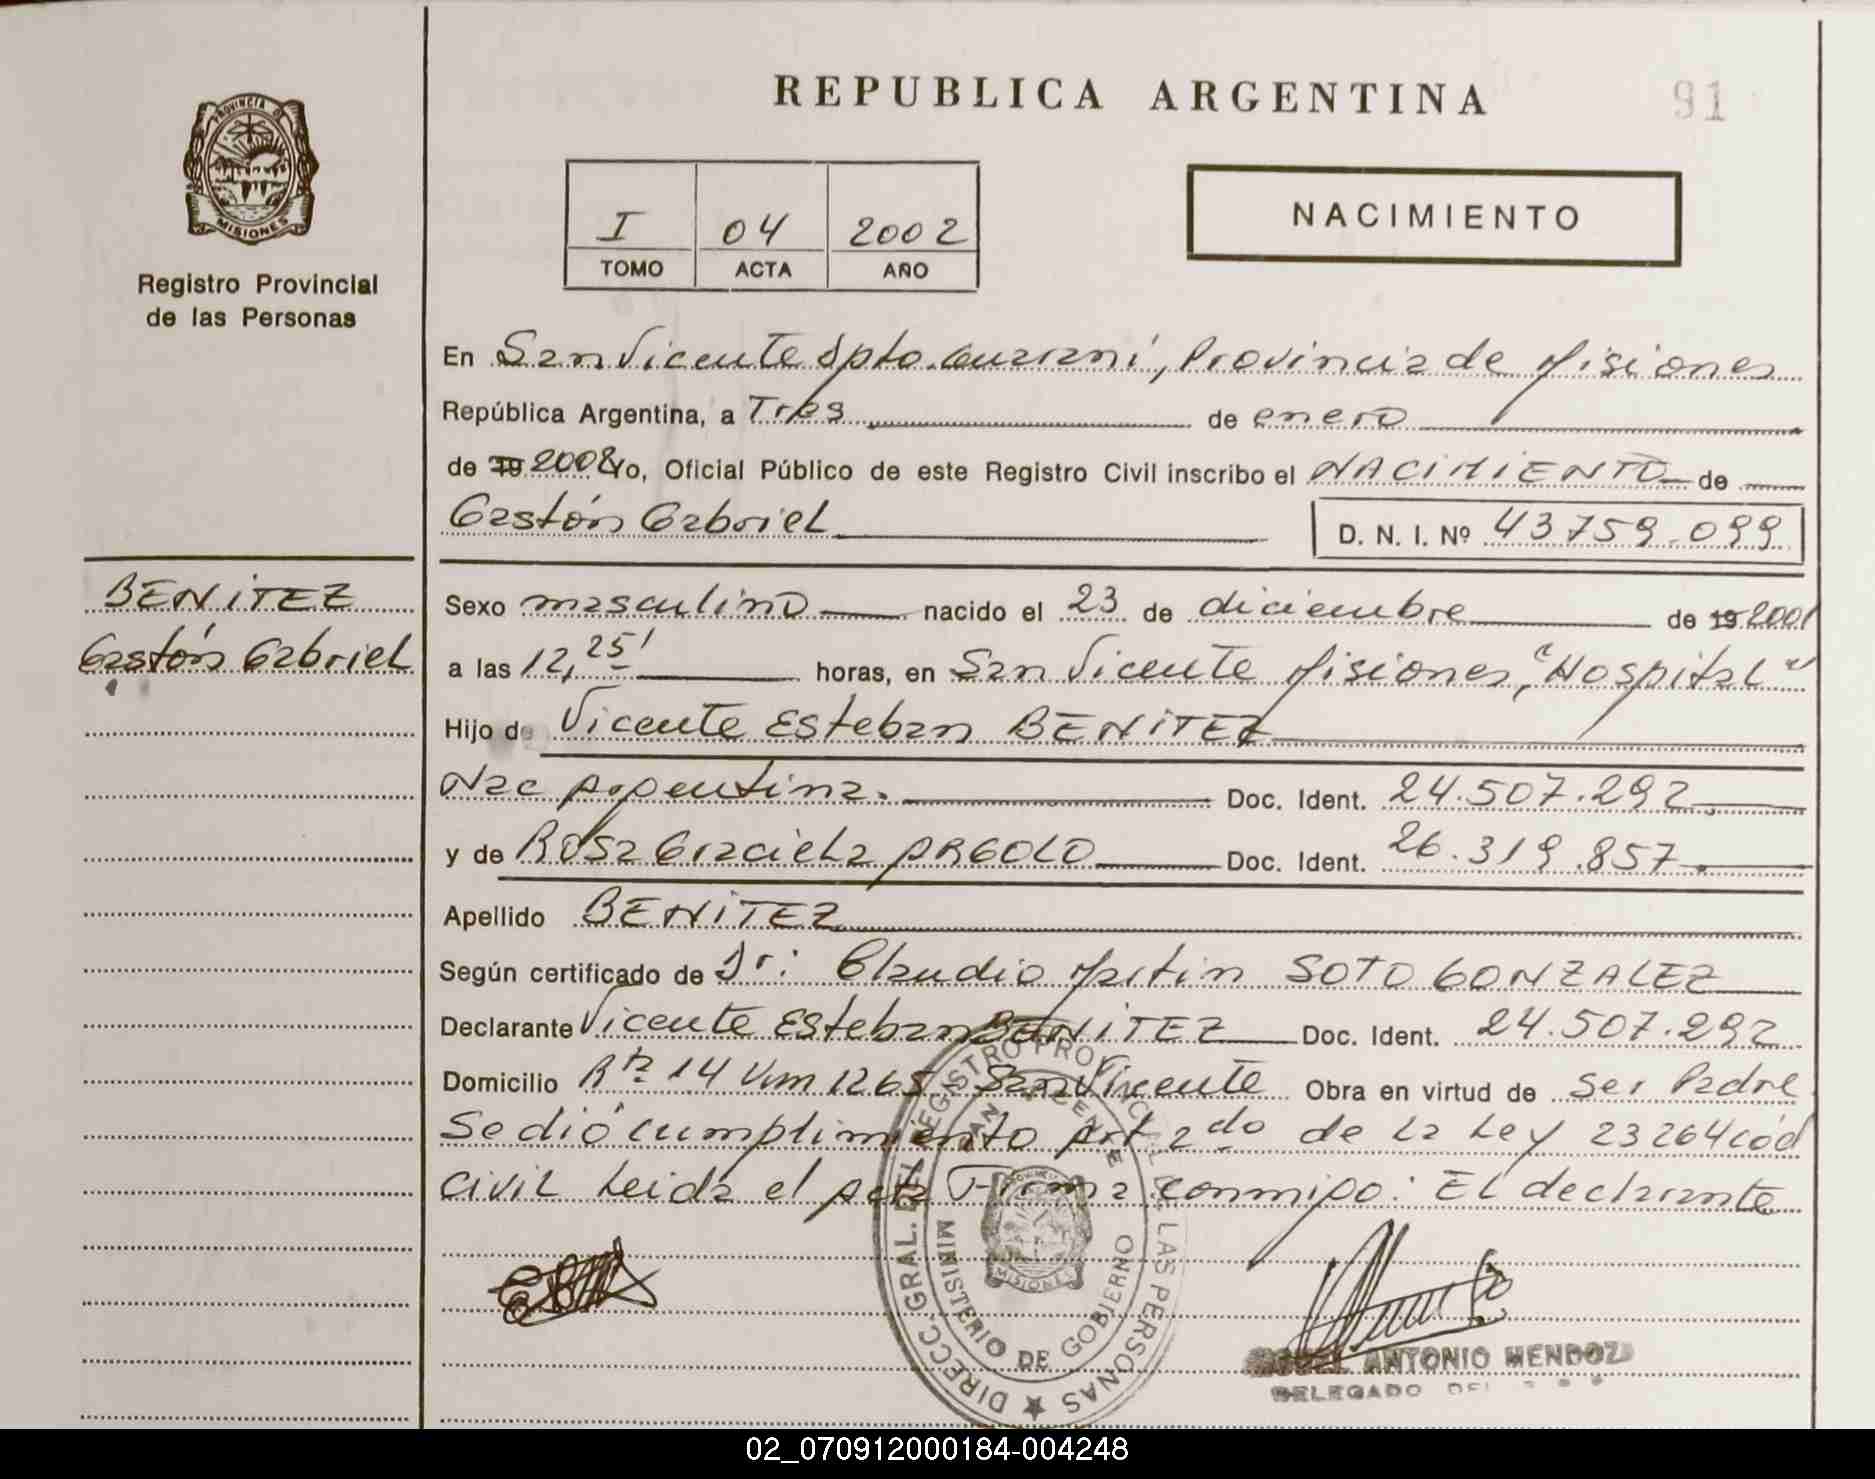 REPUBLICA ARGENTINA
91
PROVINCIA D
MISIONES
Registro Provincial
de las Personas
I 04 2002
TOMO ACTA AÑO
NACIMIENTO
En San Vicente Dpto. Guaraní, Provincia de Misiones
República Argentina, a Tres de enero
de 19 2002 Yo, Oficial Público de este Registro Civil inscribo el NACIMIENTO de
Gastón Gabriel
D. N. I. Nº 43759.099
BENITEZ
Gastón Gabriel
Sexo masculino nacido el 23 de diciembre de 19 2001
a las 12,25' horas, en San Vicente Misiones, "Hospital"
Hijo de Vicente Esteban BENITEZ
Nac Argentina. Doc. Ident. 24.507.292.
y de Rosa Graciela ARGOLO Doc. Ident. 26.319.857.
Apellido BENITEZ
Según certificado de Dr: Claudio Martin SOTO GONZALEZ
Declarante Vicente Esteban BENITEZ Doc. Ident. 24.507.292
Domicilio Rta 14 Km 1265 San Vicente Obra en virtud de Ser Padre
Se dió cumplimiento Art 2do de la Ley 23264 Cód
Civil Leida el Acta Firma conmigo: El declarante
DIRECC. GRAL. DEL REGISTRO PROVINCIAL DE LAS PERSONAS
SAN VICENTE
MINISTERIO DE GOBIERNO
MISIONES
ANTONIO MENDOZA
DELEGADO
02_070912000184-004248